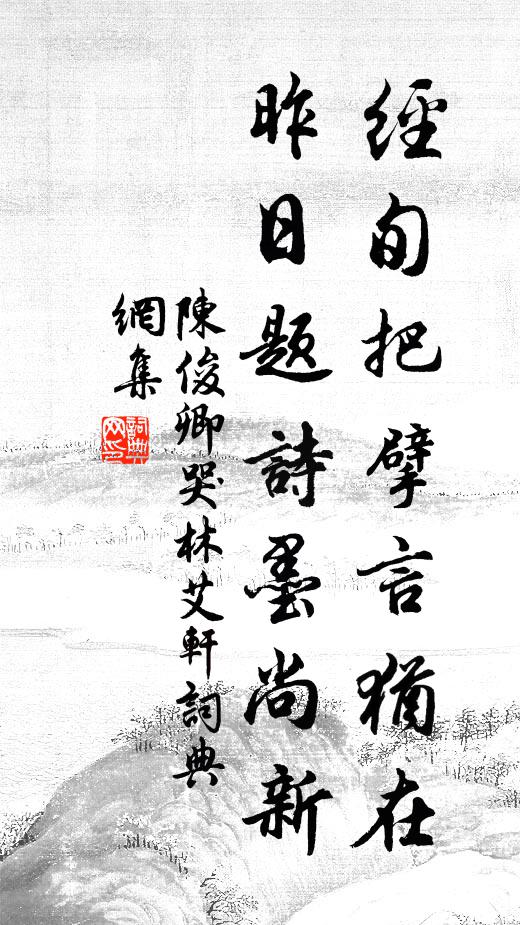 經旬把擘言猶在
昨日題詩墨尚新
陳俊卿哭林艾軒詞典
網集
詞典
网